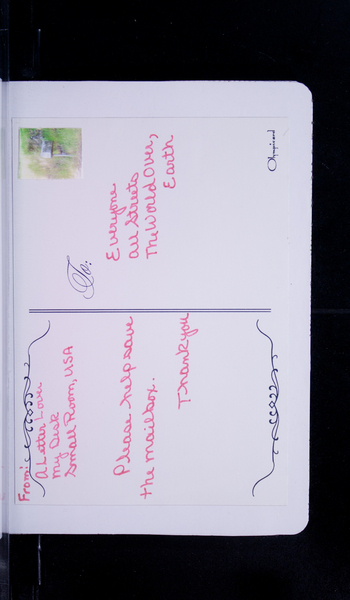 From:
A Letter Lover
My Desk
Small Room, USA
Please help save
the mailbox.
Thank you
To:
Everyone
All Streets
The World Over,
Earth